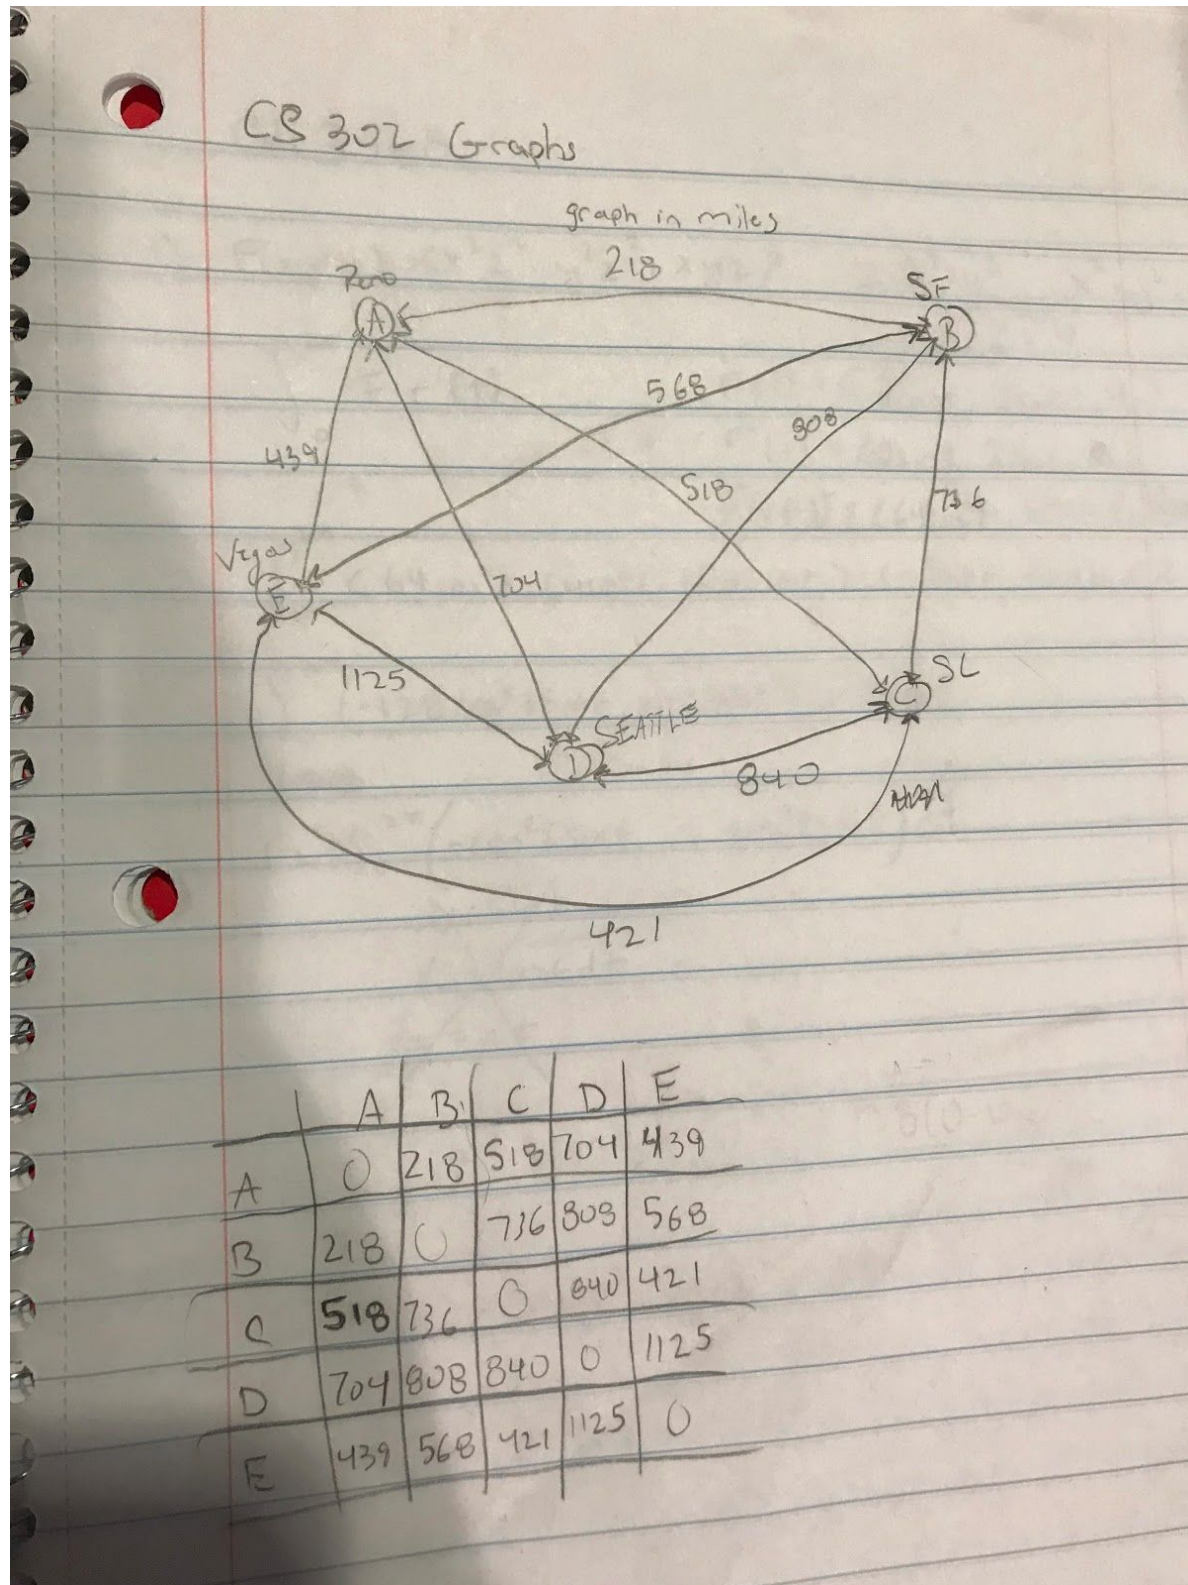 CS 302 Graphs
graph in miles
218
Reno
SF
A
B
568
808
439
518
736
Vegas
E
704
1125
SL
C
SEATTLE
D
840
421
A B C D E
A 0 218 518 704 439
B 218 0 736 808 568
C 518 736 0 840 421
D 704 808 840 0 1125
E 439 568 421 1125 0